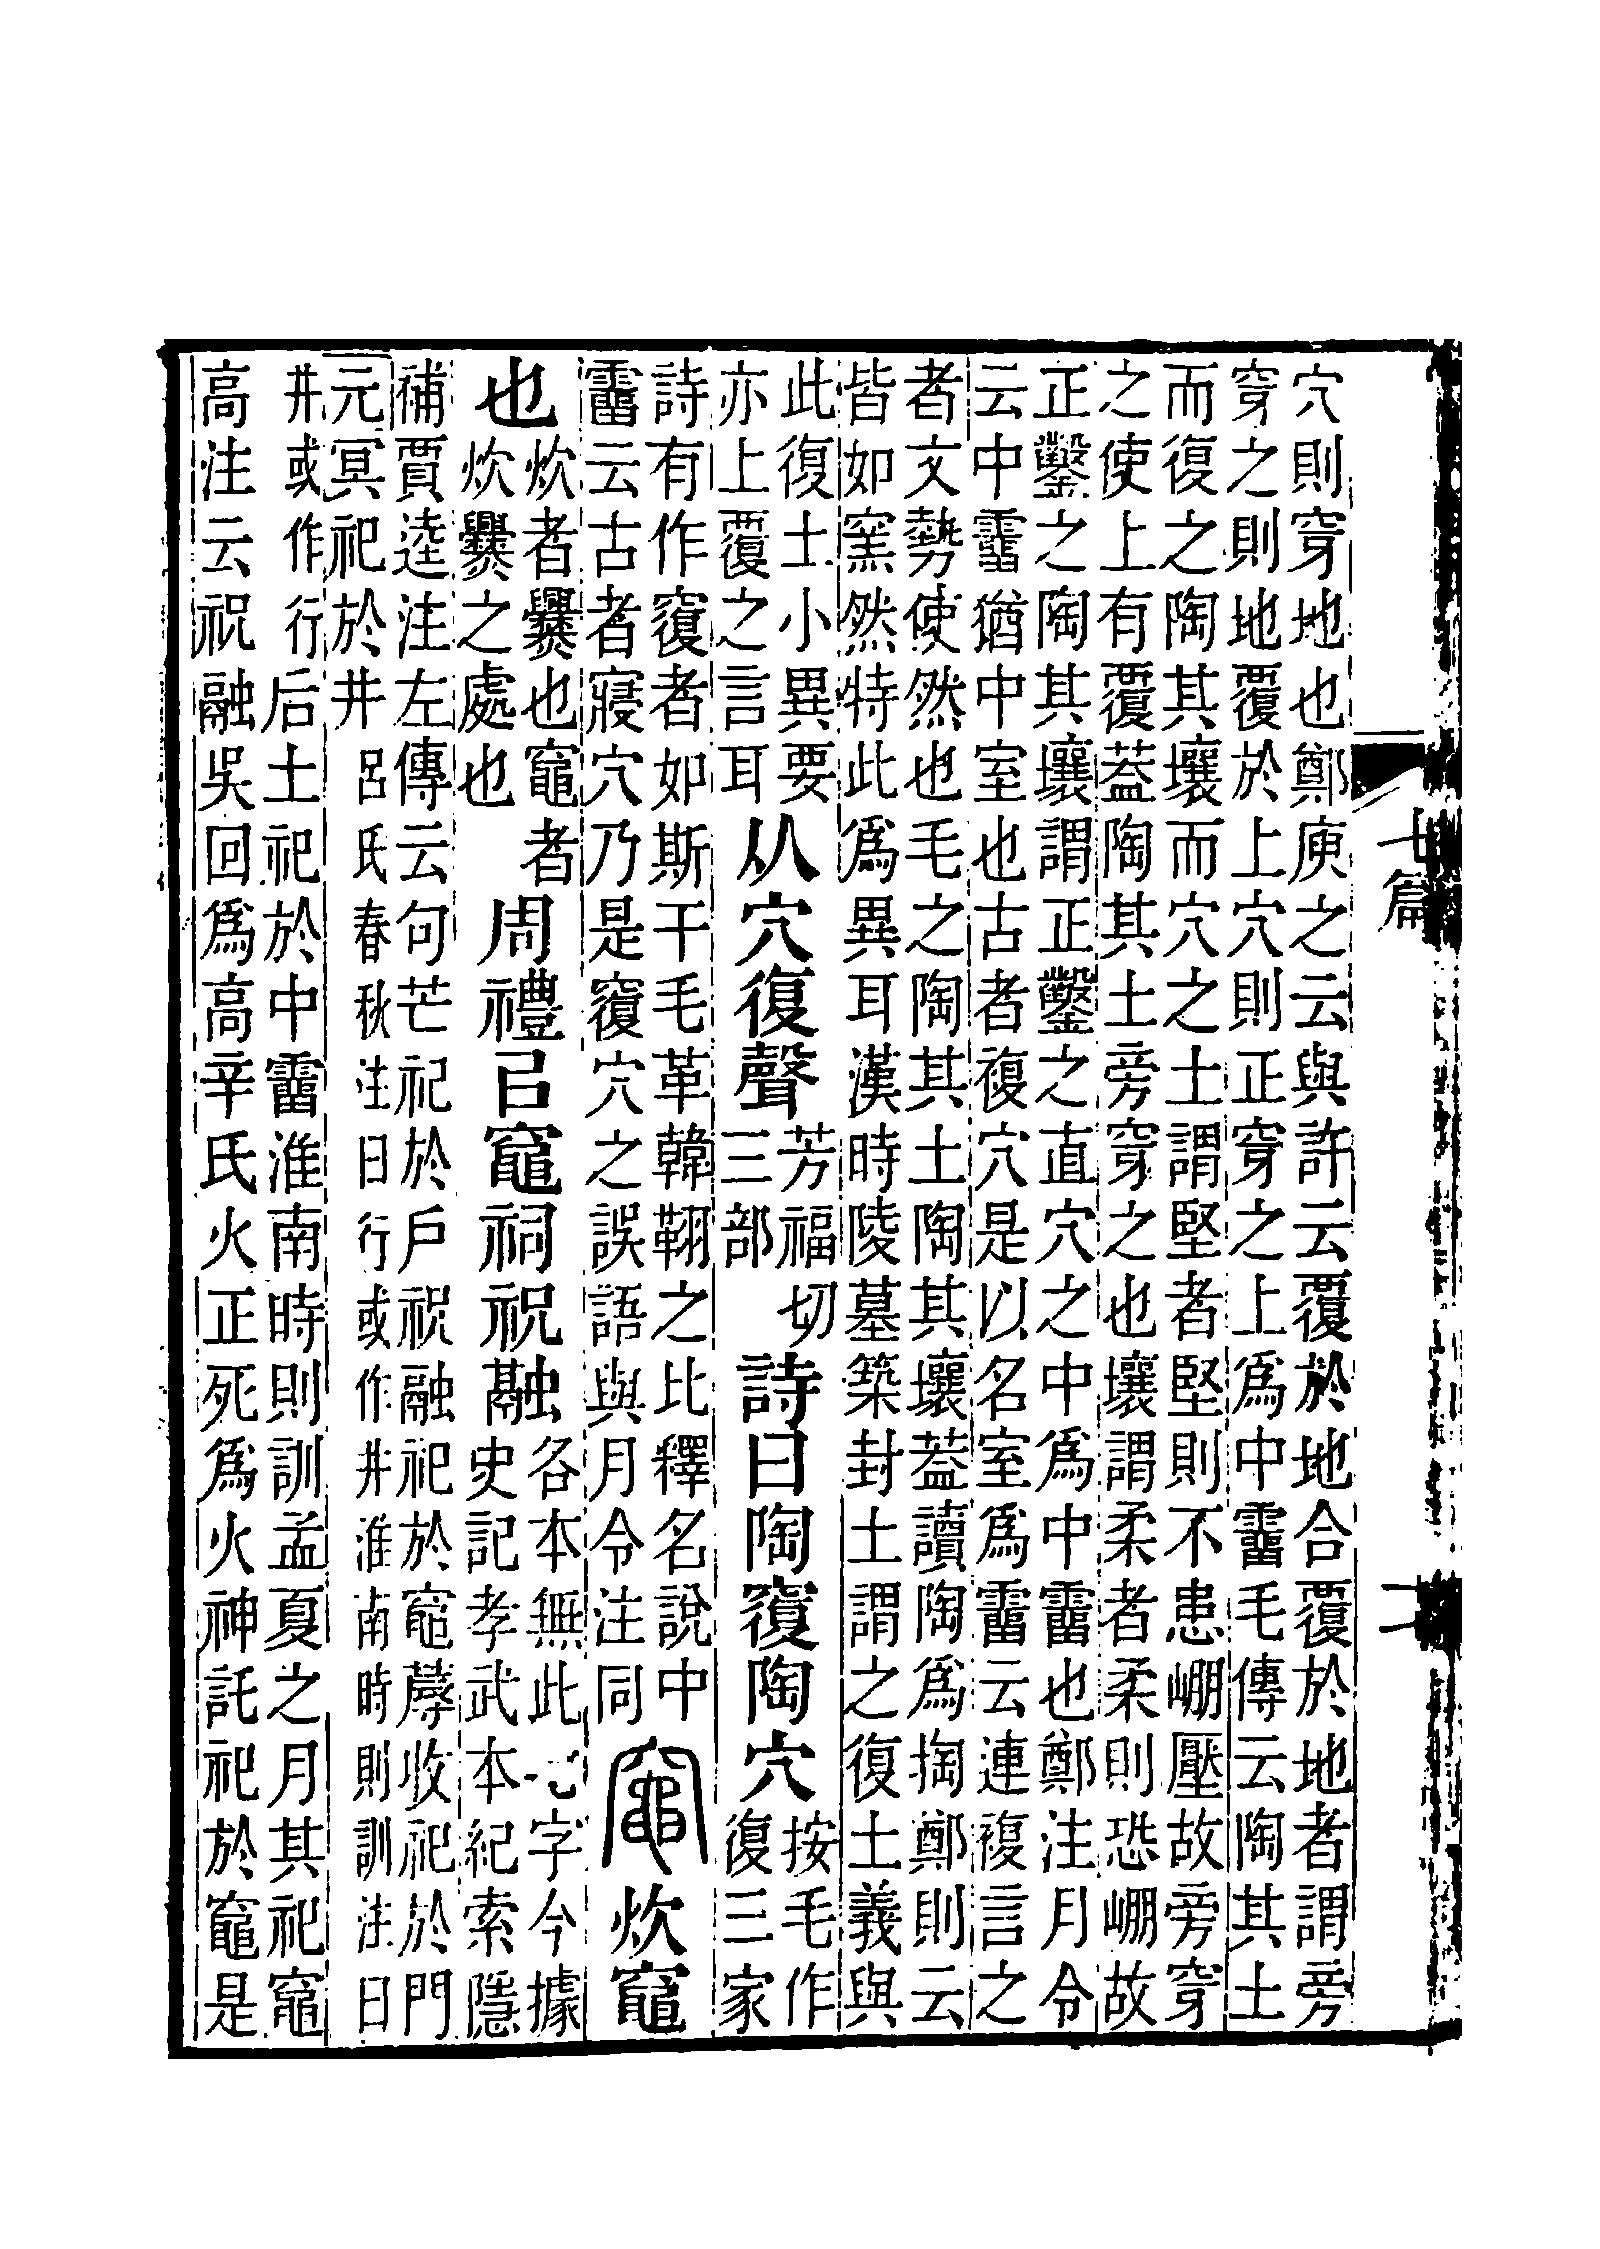 七篇
二
穴則穿地也鄭庾之云與許云覆於地合覆於地者謂旁
穿之則地覆於上穴則正穿之上爲中霤毛傳云陶其土
而復之陶其壤而穴之土謂堅者堅則不患崩壓故旁穿
之使上有覆葢陶其土旁穿之也壤謂柔者柔則恐崩故
正鑿之陶其壤謂正鑿之直穴之中爲中霤也鄭注月令
云中霤猶中室也古者複穴是以名室爲霤云連複言之
者文勢使然也毛之陶其土陶其壤葢讀陶爲掏鄭則云
皆如窯然特此爲異耳漢時陵墓築封土謂之復土義與
此復土小異要
亦上覆之言耳
从穴復聲
芳福切
三部
詩曰陶𥨍陶穴
按毛作
復三家
詩有作𥨍者如斯干毛革韓之比釋名說中
霤云古者寢穴乃是𥨍穴之誤語與月令注同
竈
炊竈
也
炊者爨也竈者
炊爨之處也
周禮㠯竈祠祝融
各本無此七字今據
史記孝武本紀索隱
補賈逵注左傳云句芒祀於戶祝融祀於竈蓐收祀於門
元冥祀於井
呂氏春秋注曰行或作井淮南時則訓注曰
井或作行
后土祀於中霤淮南時則訓孟夏之月其祀竈
高注云祝融吳回爲高辛氏火正死爲火神託祀於竈是